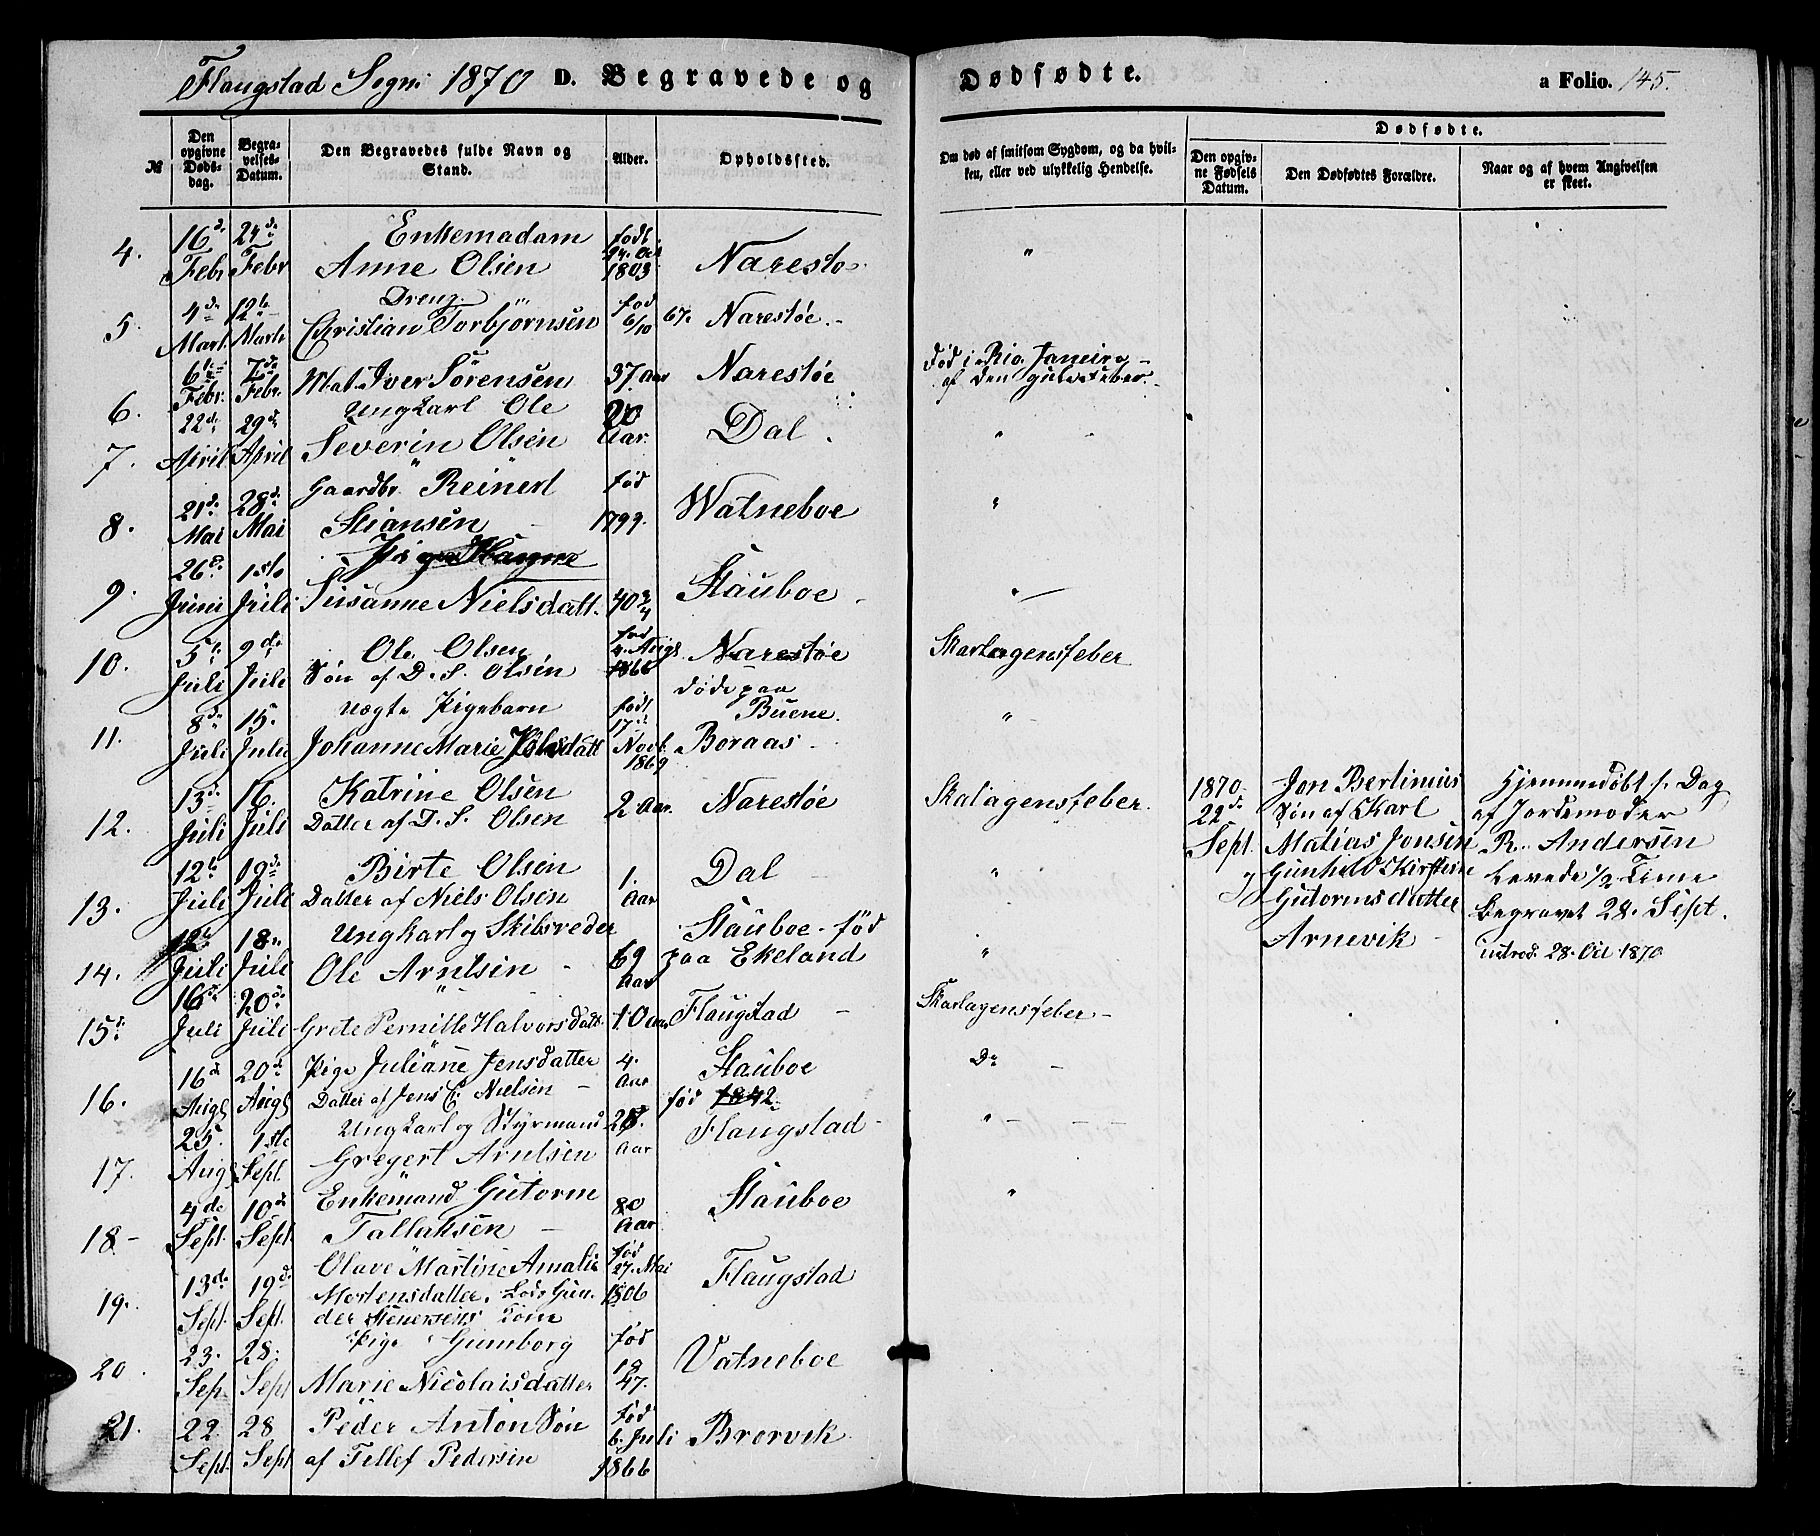 Flaugstad Sogn: 1870 D. Begravede og Dødfødte. a Folio. 145.
№
Den opgivne Døds-dag.
Begra-velses-Datum.
Den Begravedes fulde Navn og Stand.
Alder.
Opholdssted.
Om død af smitsom Sygdom, og da hvil-ken, eller ved ulykkelig Hendelse.
Dødfødte.
Den opgiv-ne Fødsels Datum.
Den Dødfødtes Forældre.
Naar og af hvem Angivelsen er skeet.
4. 16de Febr 24de Febr Enkemadam Anne Olsen født 1803 Naresto "
5. 4de Mart. 12te Marts Dreng Christian Torbjørnsen fød 6/10 67. Narestøe.
6. 6te Febr. 7de Febr. Mat. Iver Sørensen 37 Aar Narestøe Død i Rio Janeiro af den gule Feber.
7. 22de April 29de April Ungkarl Ole Severin Olsen 20 Aar. Dal. "
8. 21de Mai 28de Mai Gaardbr. Reinert Stiansen fød 1799. Watneboe "
9. 26de Juni 1ste Juli Susanne Nielsdatt. 40 3/4 Stauboe "
10. 5te Juli 9de Juli Ole Olsen Søn af D. S. Olsen fød 4. Augs 1866 Narestøe Skarlagensfeber
11. 8de Juli 15. Juli Uegte Pigebarn Johanne Marie datt født 17de Novb 1869 døde paa Buene. Boraas "
12. 13de Juli 16. Juli Katrine Olsen Datter af D. S. Olsen 2 Aar. Narestøe Skalagensfeber.
1870 22de Sept. Jon Bertinius Søn af Karl Matias Jonsen og Gunhild Kirstine Gutormsdatter Arnevik
Hjemmedøbt s. Dag af Jordemoder R. Andersen Levede 1/2 Time Begravet 28. Sept. introd. 28. Oct 1870
13. 12te Juli 19de Juli Birte Olsen Datter af Niels Olsen 1. Aar Dal "
14. 12te Juli 18de Juli Ungkarl og Skibsreder Ole Arntsen 69 Aar Stauboe - fød paa Ekeland "
15de 16de Juli 20de Juli Grete Pernille Halvorsdatt. 10 Aar Flaugstad Skarlagensfeber
16. 16de Augs 20de Augs Pige Juliane Jensdatter Datter af Jens C. Nielsen 4. Aar Stauboe Do
17. 25. Augs 1ste Sept. Ungkarl og Styrmand Gregert Arntsen 28. Aar fød 1842 Flaugstad "
18 4de Sept. 10de Sept. Enkemand Gutorm Tallaksen 80 Aar Stauboe "
19. 13de Sept. 19de Sept. Olave Martine Amalie Mortensdatter. Lods Gun-der Stenersens Kone fød 27. Mai 1806 Flaugstad
20. 23. Sep. 28. Sept Pige Gumborg Marie Nicolaisdatter fød 1847. Vatneboe
21. 22 Sept. 28 Sept. Peder Anton Søn af Tellef Pedersen fød 6. Juli 1866 Brorvik